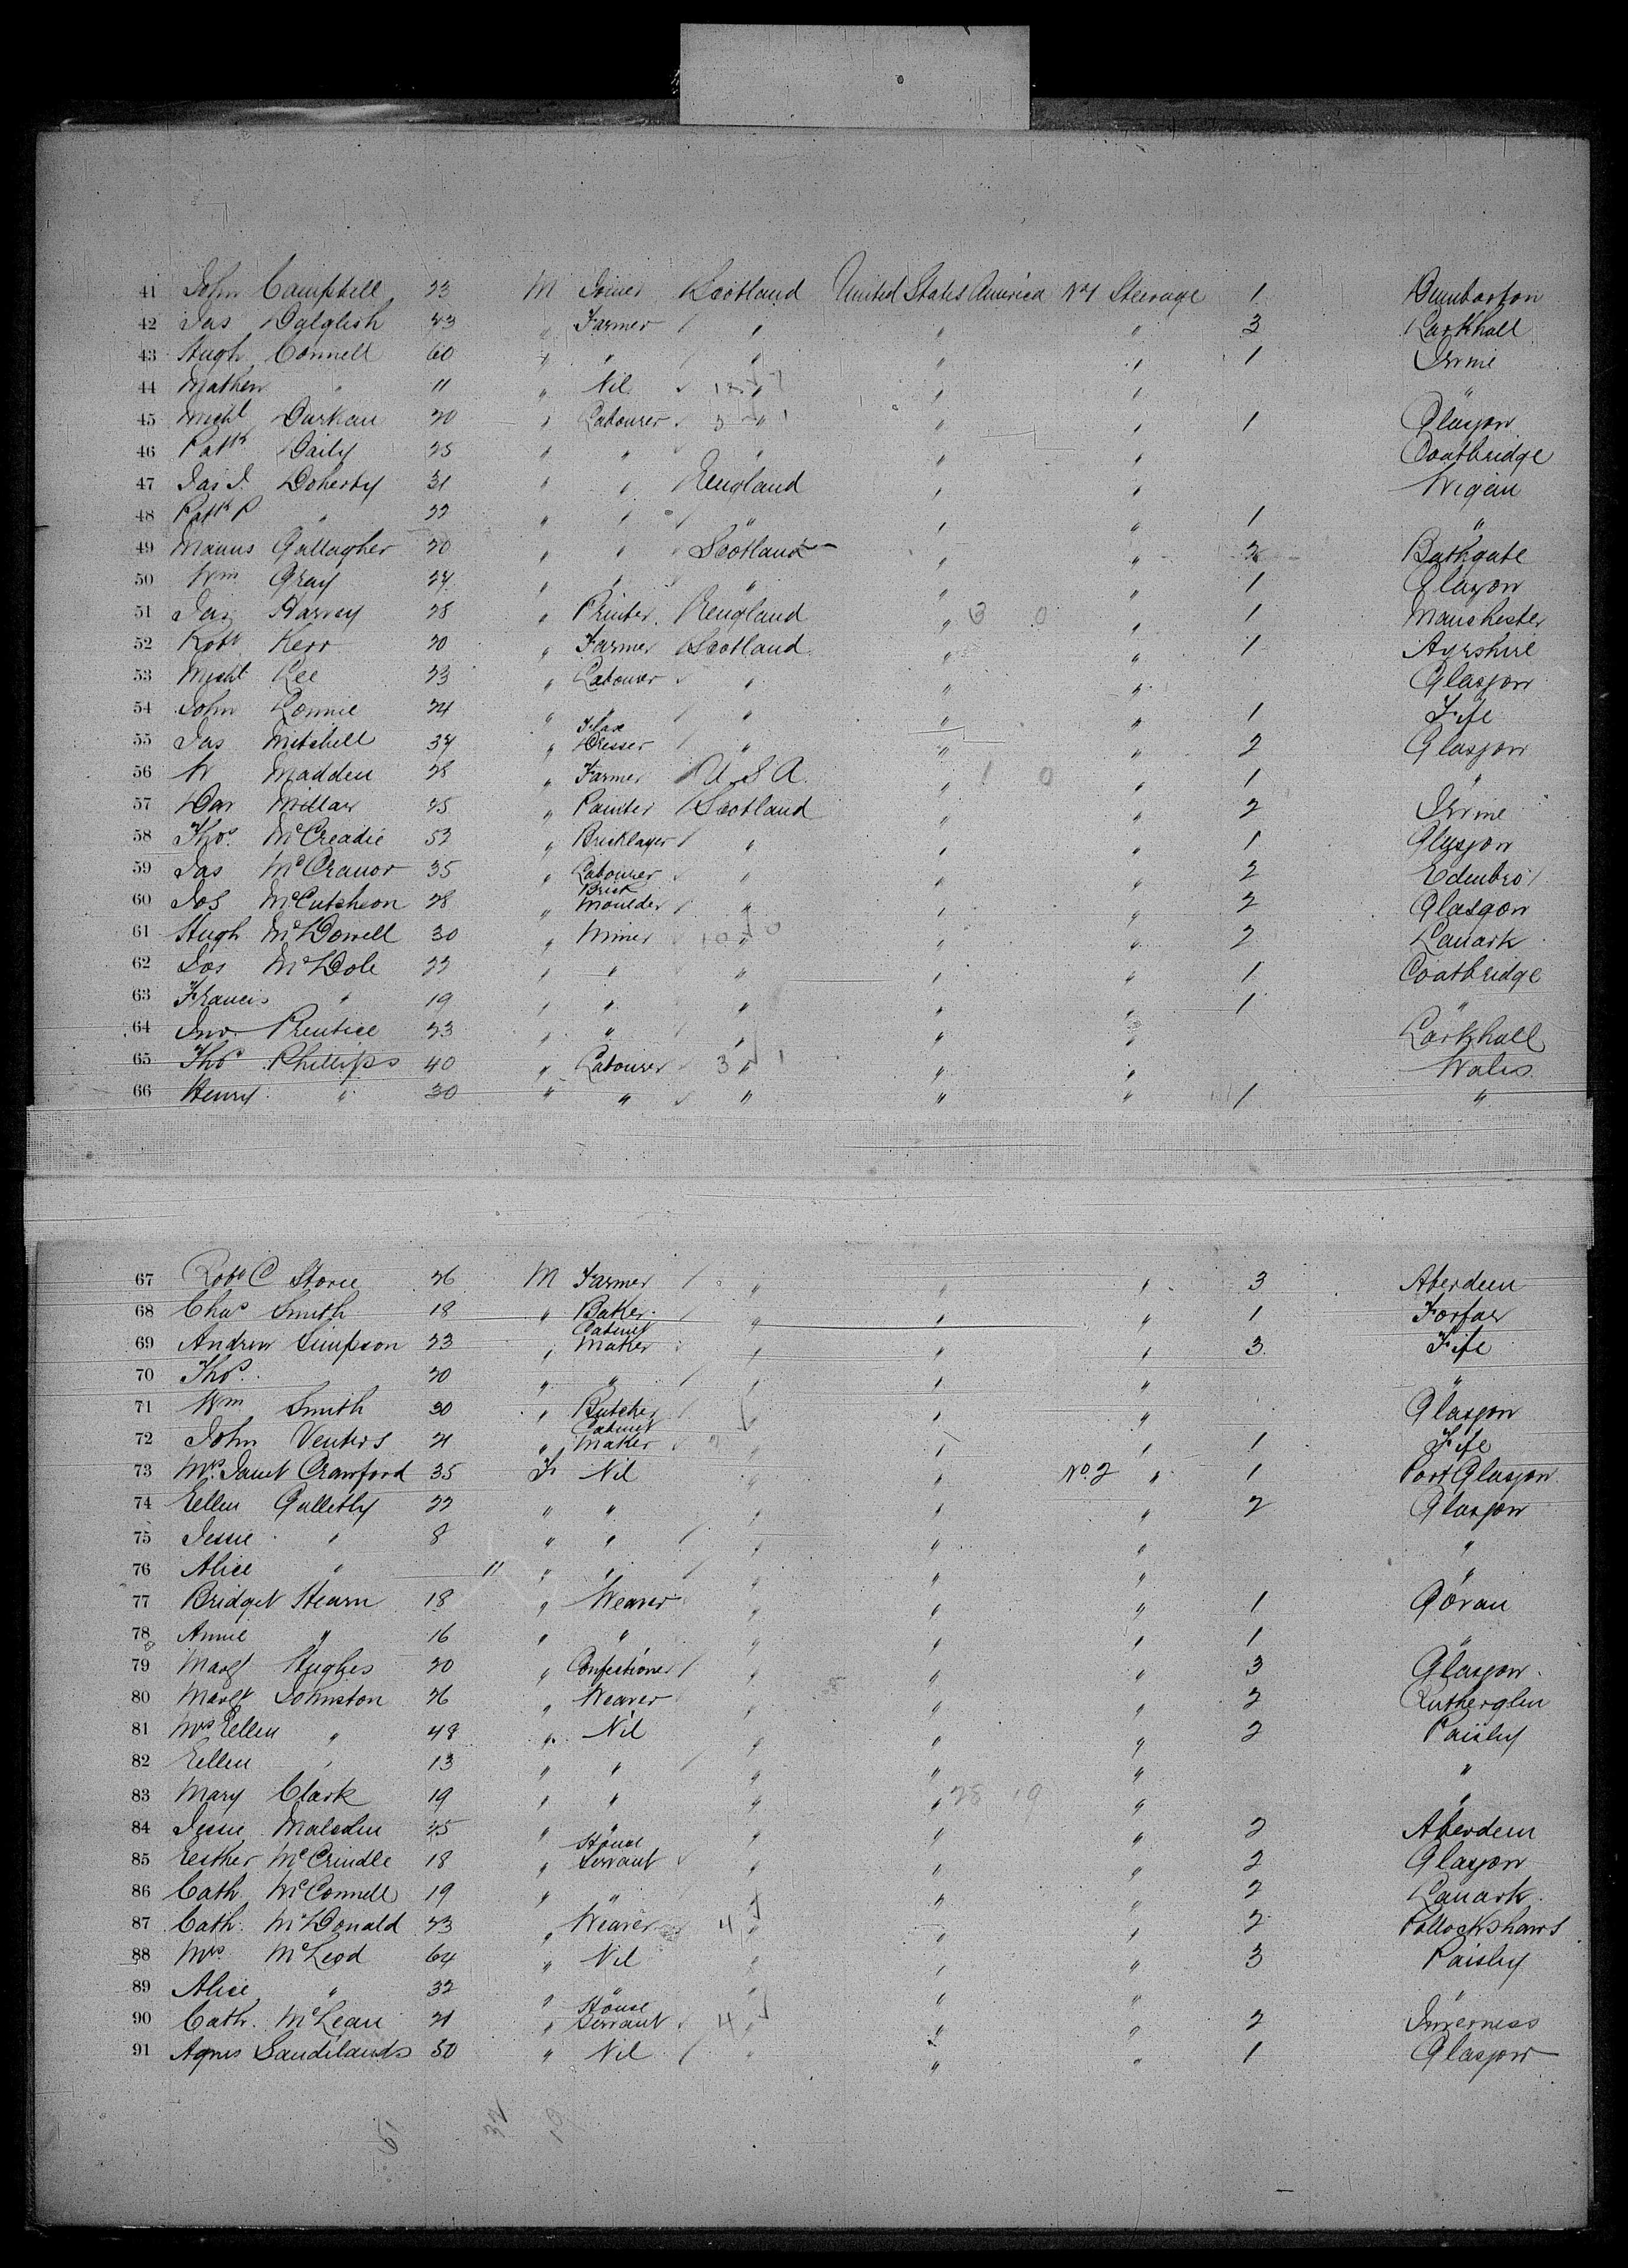 41 John Campbell 23 M Joiner Scotland United States America No 1 Steerage 1 Dumbarton
42 Jas Dalglish 43 " Farmer " " " 3 Larkhall
43 Hugh Connell 60 " " " " " 1 Irvine
44 Mathew " 11 " Nil " " " "
45 Michl Durkan 20 " Labourer " " " 1 Glasgow
46 Patk Daily 25 " " " " " Coatbridge
47 Jas J. Doherty 31 " " England " " Wigan
48 Patk P " 22 " " " " " 1 "
49 Manus Gallagher 20 " " Scotland " " 2 Bathgate
50 Wm Gray 24 " " " " " 1 Glasgow
51 Jas Harvey 28 " Printer England " 3 0 " 1 Manchester
52 Robt Kerr 20 " Farmer Scotland " " 1 Ayrshire
53 Michl Lee 23 " Labourer " " " Glasgow
54 John Lonnie 24 " " " " " 1 Fife
55 Jas Mitchell 34 " Flax Dresser " " " 2 Glasgow
56 W Madden 28 " Farmer U S A. " 1 0 " 1 "
57 Dan Millar 25 " Painter Scotland " " 2 Irvine
58 Thos. McCreadie 52 " Bricklayer " " " 1 Glasgow
59 Jas McCranor 35 " Labourer " " " 2 Edenbro
60 Jos McCutcheon 28 " Brick Moulder " " " 2 Glasgow
61 Hugh McDowell 30 " Miner 10 " 0 " " 2 Lanark
62 Jos McDole 22 " " " " " 1 Coatbridge
63 Francis " 19 " " " " " 1 "
64 Jno. Prentice 23 " " " " " Larkhall
65 Thos Phillips 40 " Labourer 3 " 1 " " Wales
66 Henry " 30 " " " " " 1 "
67 Robt C Storie 26 M Farmer " " " 3 Aberdeen
68 Chas Smith 18 " Baker " " " 1 Forfar
69 Andrew Simpson 23 " Cabinet Maker " " " 3 Fife
70 Thos. 20 " " " " " "
71 Wm Smith 30 " Butcher " " " Glasgow
72 John Venters 21 " Cabinet Maker " " " 1 Fife
73 Mrs. Janet Crawford 35 F Nil " " No. 2 " 1 Port Glasgow
74 Ellen Galletly 22 " " " " " 2 Glasgow
75 Jessie " 8 " " " " " "
76 Alice " 11 " " " " " "
77 Bridget Hearn 18 " Weaver " " " 1 Govan
78 Annie " 16 " " " " " 1 "
79 Margt Hughes 20 " Confectioner " " " 3 Glasgow
80 Margt Johnston 26 " Weaver " " " 2 Rutherglen
81 Mrs Ellen " 48 " Nil " " " 2 Paisley
82 Ellen " 13 " " " " " "
83 Mary Clark 19 " " " " 28 19 " "
84 Jessie Malsden 25 " " " " " 2 Aberdeen
85 Esther McCrindle 18 " House Servant " " " 2 Glasgow
86 Cath. McConnell 19 " " " " " 2 Lanark
87 Cath. McDonald 23 " Weaver 4 " " " 2 Pollockshaws
88 Mrs McLeod 64 " Nil " " " 3 Paisley
89 Alice " 32 " " " " " "
90 Cath. McLean 21 " House Servant 4 " " " 2 Inverness
91 Agnes Sandilands 50 " Nil " " " 1 Glasgow